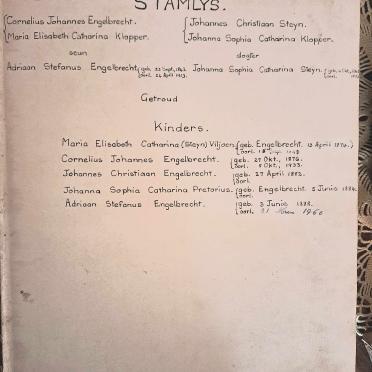 STAMLYS.
Cornelius Johannes Engelbrecht. Johannes Christiaan Steyn.
Maria Elisabeth Catharina Klopper. Johanna Sophia Catharina Klopper.
seun dogter
Adriaan Stefanus Engelbrecht Johanna Sophia Catharina Steyn.
Getroud
Kinders.
Maria Elisabeth Catharina (Steyn) Viljoen (geb. Engelbrecht. 13 April 1874.)
oorl.
Cornelius Johannes Engelbrecht. geb. 27 Okt., 1876.
oorl. 5 Okt., 1933.
Johannes Christiaan Engelbrecht. geb. 27 April 1882.
oorl.
Johanna Sophia Catharina Pretorius. geb. Engelbrecht 5 Junie 1884.
oorl.
Adriaan Stefanus Engelbrecht. geb. 3 Junie 1888.
oorl. 1960